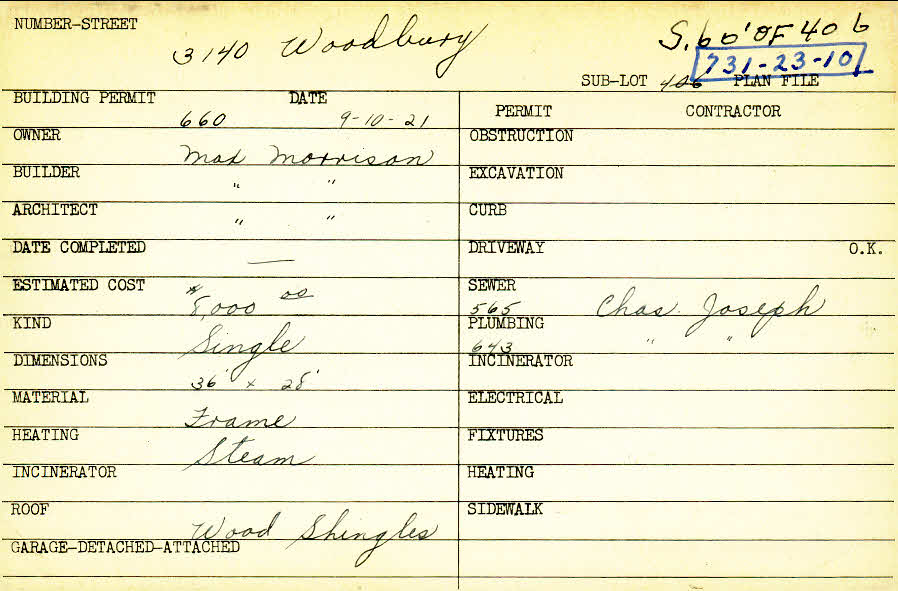 NUMBER-STREET 3140 Woodbury S. 60' OF 406
731-23-10
SUB-LOT 406 PLAN FILE
BUILDING PERMIT DATE
660 9-10-21
OWNER
Max Morrison
BUILDER
" "
ARCHITECT
" "
DATE COMPLETED
—
ESTIMATED COST
$8,000 00
KIND
Single
DIMENSIONS
36' x 28'
MATERIAL
Frame
HEATING
Steam
INCINERATOR
ROOF
Wood Shingles
GARAGE-DETACHED-ATTACHED
PERMIT CONTRACTOR
OBSTRUCTION
EXCAVATION
CURB
DRIVEWAY O.K.
SEWER
565 Chas. Joseph
PLUMBING
643 " "
INCINERATOR
ELECTRICAL
FIXTURES
HEATING
SIDEWALK